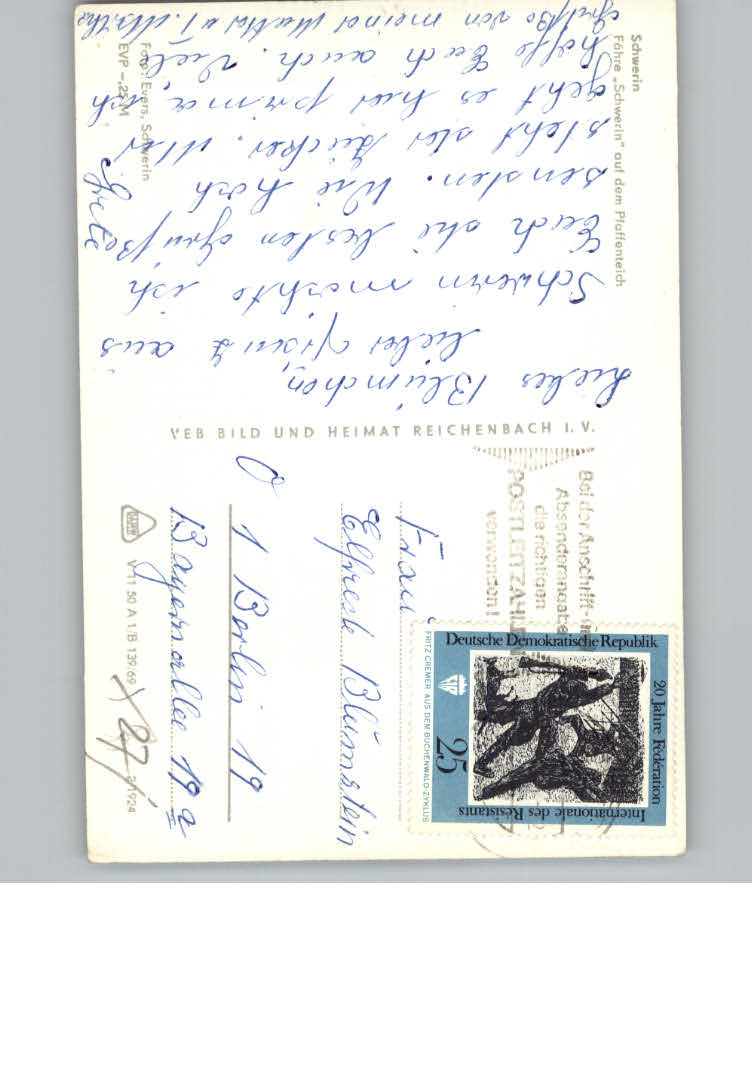 Schwerin
Fähre „Schwerin" auf dem Pfaffenteich
Liebes Blümchen,
lieber Horst & aus
Schwerin möchte ich
Euch die besten Grüße
senden. Wie hoch
steht der Zucker. Mir
geht es hier prima, ich
hoffe Euch auch. Viele
Grüße von meiner Mutter u. T. Martha
Foto: Evers, Schwerin
EVP -,25 M
VEB BILD UND HEIMAT REICHENBACH I. V.
Bei der Anschrift
Absenderangabe
die richtigen
POSTLEITZAHL
verwenden!
Deutsche Demokratische Republik
20 Jahre Federation
Internationale des Resistants
25
FRITZ CREMER AUS DEM BUCHENWALD-ZYKLUS
Frau
Elfriede Blumstein
1 Berlin 19
Bayernallee 19 a
V 11 50 A 1/B 139/69
1924
27